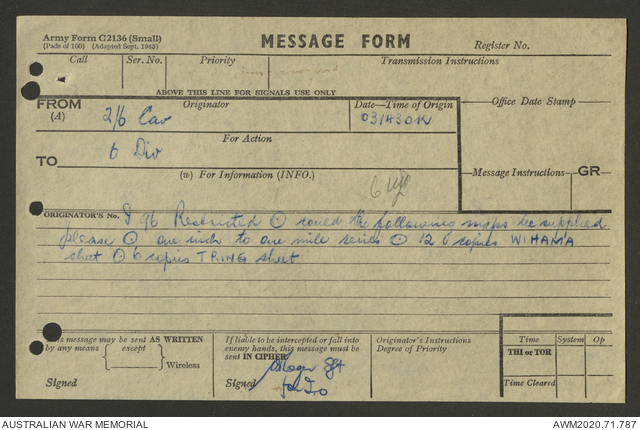 Army Form C2136 (Small)
(Pads of 100) (Adapted Sept. 1943)
MESSAGE FORM
Register No.
Call Ser. No. Priority Transmission Instructions
ABOVE THIS LINE FOR SIGNALS USE ONLY
FROM
(A)
Originator
2/6 Cav
Date—Time of Origin
031430K
Office Date Stamp
For Action
TO
6 Div
(w) For Information (INFO.)
Message Instructions
GR
ORIGINATOR'S No.
I 96 Restricted ⊙ could the following maps be supplied
please ⊙ one inch to one mile series ⊙ 12 copies WIHAMA
sheet ⊙ 6 copies TRING sheet
This message may be sent AS WRITTEN
by any means except
Wireless
Signed
If liable to be intercepted or fall into
enemy hands, this message must be
sent IN CIPHER
Signed
Sgt
for IO
Originator's Instructions
Degree of Priority
Time System Op
THI or TOR
Time Cleared
AUSTRALIAN WAR MEMORIAL
AWM2020.71.787